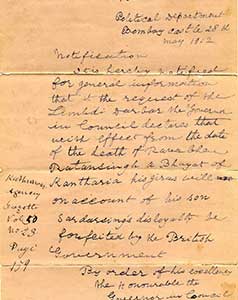 Political Department
Bombay Castle 28th
May 1912
Notification
It is hereby notified
for general information
that at the request of the
Limbdi Darbar the Governor
in Council declares that
with effect from the date
of the death of Rawablai
Ratansingh a Bhayat of
Kantharia his giras will
on account of his son
Sardarsing's disloyalty be
forfeited by the British
Government
By order of his excellency
the Honourable the
Governor in Council
Kathiawar
Agency
Gazette
Vol 50
Page
159